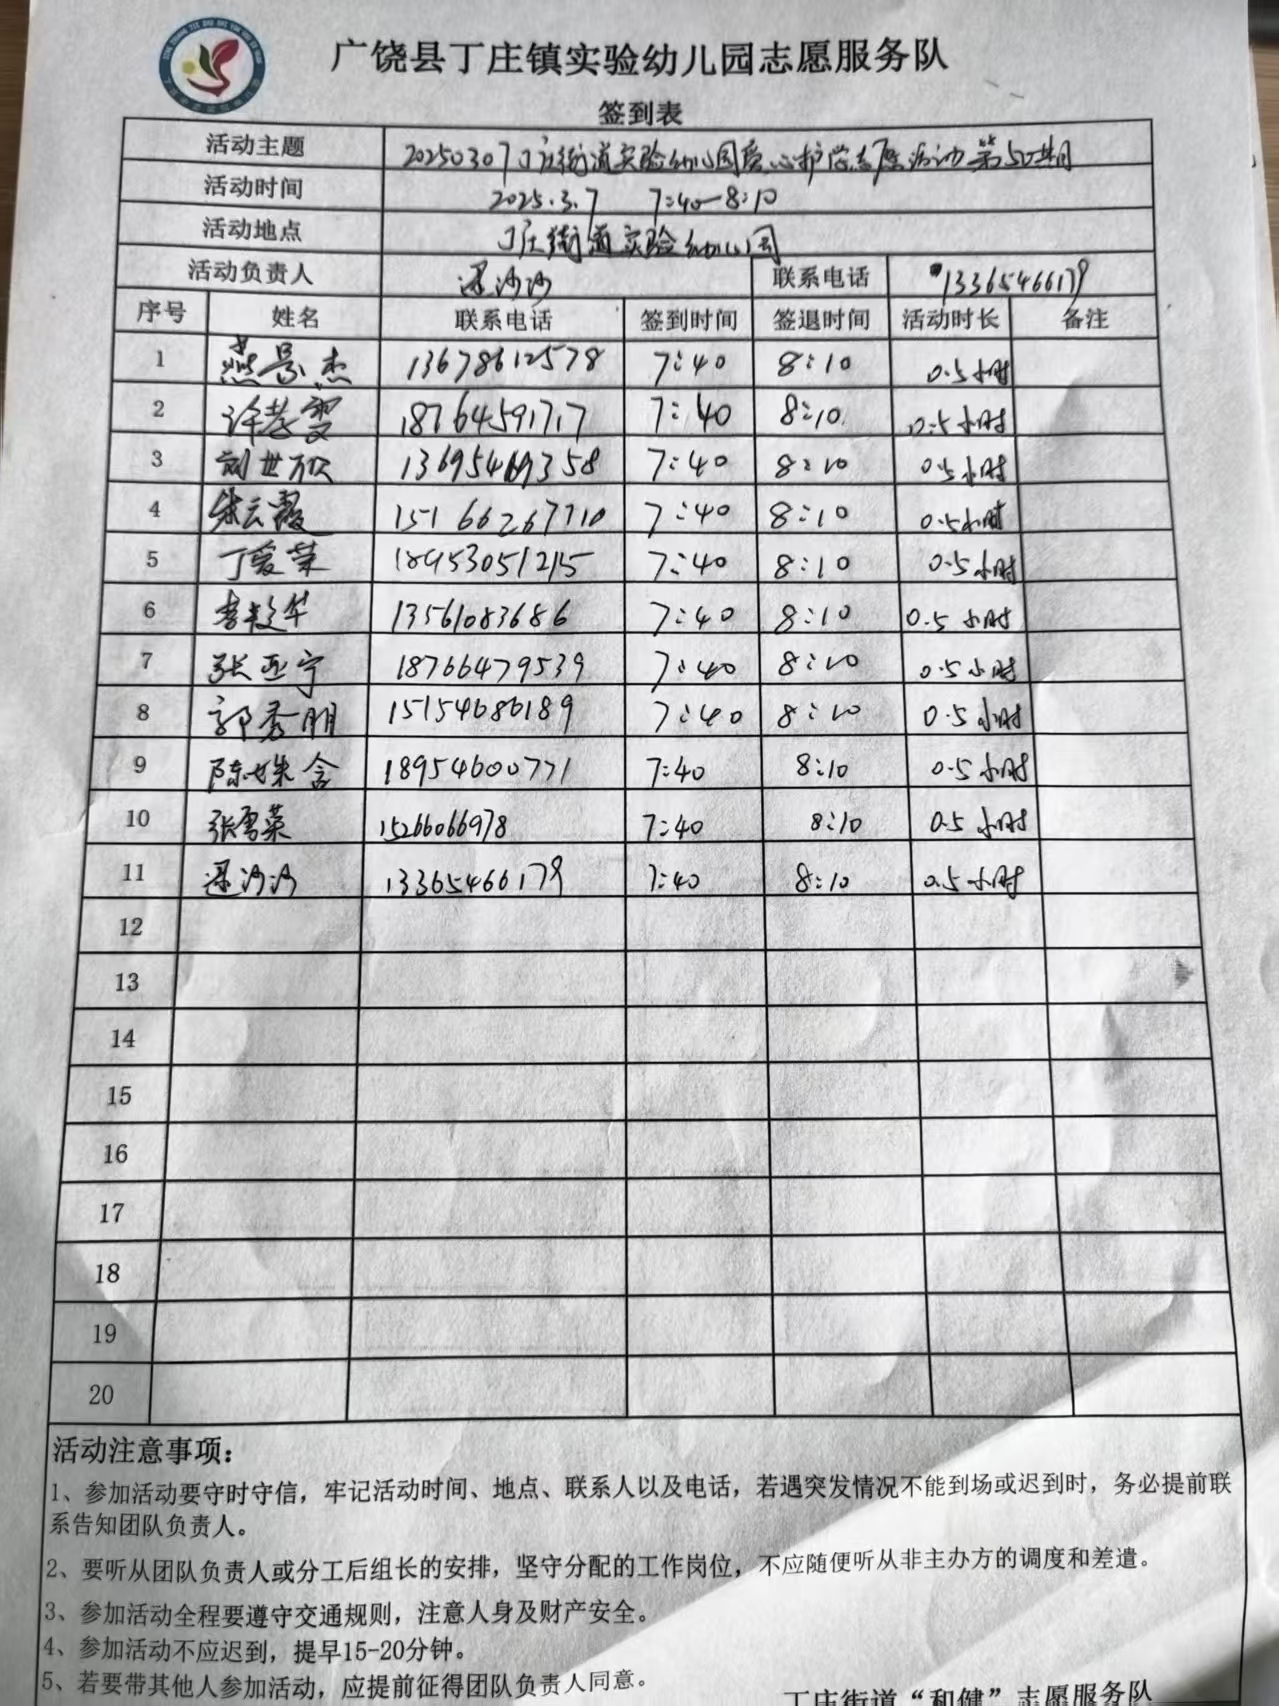 广饶县丁庄镇实验幼儿园志愿服务队
签到表
活动主题 20250307丁庄街道实验幼儿园爱心护学志愿活动第50期
活动时间 2025.3.7 7:40-8:10
活动地点 丁庄街道实验幼儿园
活动负责人 沙沙 联系电话 13365466179
序号 姓名 联系电话 签到时间 签退时间 活动时长 备注
1 燕景杰 13678612578 7:40 8:10 0.5小时
2 许孝雯 18764591717 7:40 8:10 0.5小时
3 刘世欣 13695469358 7:40 8:10 0.5小时
4 朱云霞 15166267710 7:40 8:10 0.5小时
5 丁爱荣 18953051215 7:40 8:10 0.5小时
6 李 华 13561083686 7:40 8:10 0.5小时
7 张亚宁 18766479539 7:40 8:10 0.5小时
8 郭秀朋 15154686189 7:40 8:10 0.5小时
9 陈姝含 18954600771 7:40 8:10 0.5小时
10 张雪菜 15266066978 7:40 8:10 0.5小时
11 沙沙 13365466179 7:40 8:10 0.5小时
12
13
14
15
16
17
18
19
20
活动注意事项：
1、参加活动要守时守信，牢记活动时间、地点、联系人以及电话，若遇突发情况不能到场或迟到时，务必提前联
系告知团队负责人。
2、要听从团队负责人或分工后组长的安排，坚守分配的工作岗位，不应随便听从非主办方的调度和差遣。
3、参加活动全程要遵守交通规则，注意人身及财产安全。
4、参加活动不应迟到，提早15-20分钟。
5、若要带其他人参加活动，应提前征得团队负责人同意。
丁庄街道“和健”志愿服务队